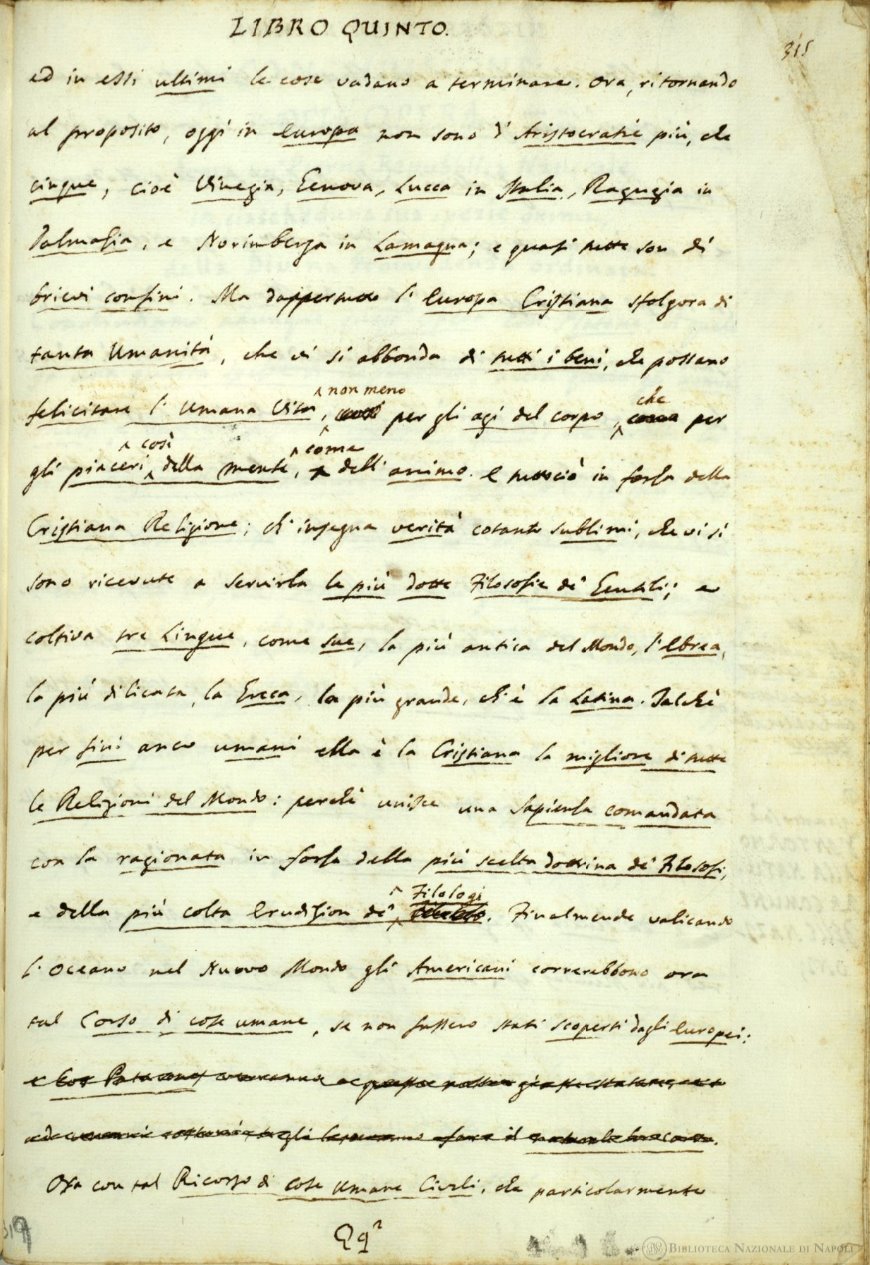 LIBRO QUINTO.
315
ed in essi ultimi le cose vadano a terminare. Ora, ritornando
al proposito, oggi in Europa non sono d' Aristocratie più, che
cinque, cioè Vinegia, Genova, Lucca in Italia, Ragugia in
Dalmasia, e Norimberga in Lamagna; e quasi tutte son di
brievi confini. Ma dappertutto l' Europa Cristiana sfolgora di
tanta Umanità, che vi si abbonda di tutti i beni, che possano
felicitare l' Umana Vita, non meno per gli agi del corpo, che per
gli piaceri così della mente, come dell' animo. E tuttociò in forsa della
Cristiana Religione; ch' insegna verità cotanto sublimi, che vi si
sono ricevute a servirla le più dotte Filosofie de' Gentili; e
coltiva tre Lingue, come sue, la più antica del Mondo, l' Ebrea,
la più dilicata, la Greca, la più grande, ch' è la Latina. Talchè
per fini anco umani ella è la Cristiana la migliore di tutte
le Religioni del Mondo: perchè unisce una Sapiensa comandata
con la ragionata in forsa della più scelta dottrina de' Filosofi,
e della più colta Erudision de' Filologi. Finalmente valicando
l' Oceano nel Nuovo Mondo gli Americani correrebbono ora
tal Corso di cose umane, se non fussero stati scoperti dagli Europei:
Ora con tal Ricorso di cose Umane Civili, che particolarmente
Qq2
319
BIBLIOTECA NAZIONALE DI NAPOLI